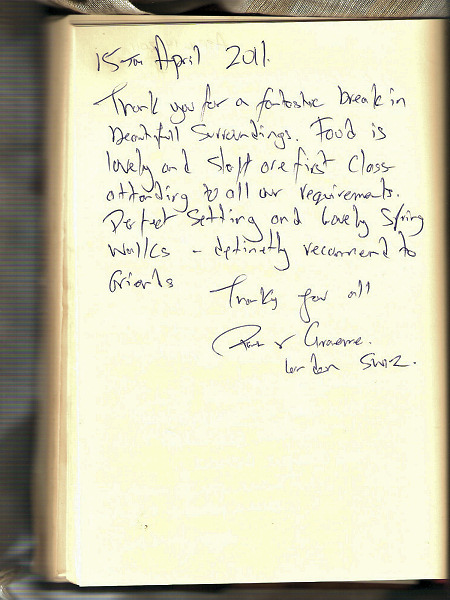 15TH April 2011.
Thank you for a fantastic break in
beautifull surroundings. Food is
lovely and staff are first class
attending to all our requirements.
Perfect setting and lovely Spring
walks - definetly recommend to
friends
Thanks for all
& Graeme.
London SW12.